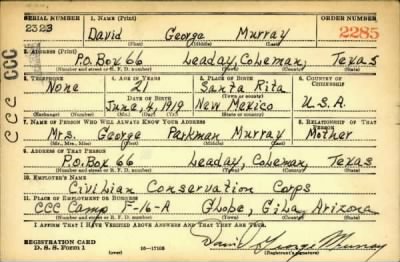 SERIAL NUMBER 1. NAME (Print) ORDER NUMBER
2323 David George Murray 2285
(First) (Middle) (Last)
2. ADDRESS (Print)
P.O. Box 66 Leaday, Coleman, Texas
(Number and street or R. F. D. number) (Town) (County) (State)
3. TELEPHONE 4. AGE IN YEARS 5. PLACE OF BIRTH 6. COUNTRY OF CITIZENSHIP
None 21 Santa Rita
DATE OF BIRTH
June, 4, 1919 New Mexico U.S.A.
7. NAME OF PERSON WHO WILL ALWAYS KNOW YOUR ADDRESS 8. RELATIONSHIP OF THAT PERSON
Mrs. George Parkman Murray Mother
(Mr., Mrs., Miss) (First) (Middle) (Last)
9. ADDRESS OF THAT PERSON
P.O. Box 66 Leaday, Coleman, Texas
(Number and street or R. F. D. number) (Town) (County) (State)
10. EMPLOYER'S NAME
Civilian Conservation Corps
11. PLACE OF EMPLOYMENT OR BUSINESS
CCC Camp F-16-A Globe, Gila, Arizona
(Number and street or R. F. D. number) (Town) (County) (State)
I AFFIRM THAT I HAVE VERIFIED ABOVE ANSWERS AND THAT THEY ARE TRUE.
REGISTRATION CARD
D. S. S. Form 1 16-17105 David George Murray
(Registrant's signature)
CCC
CCC